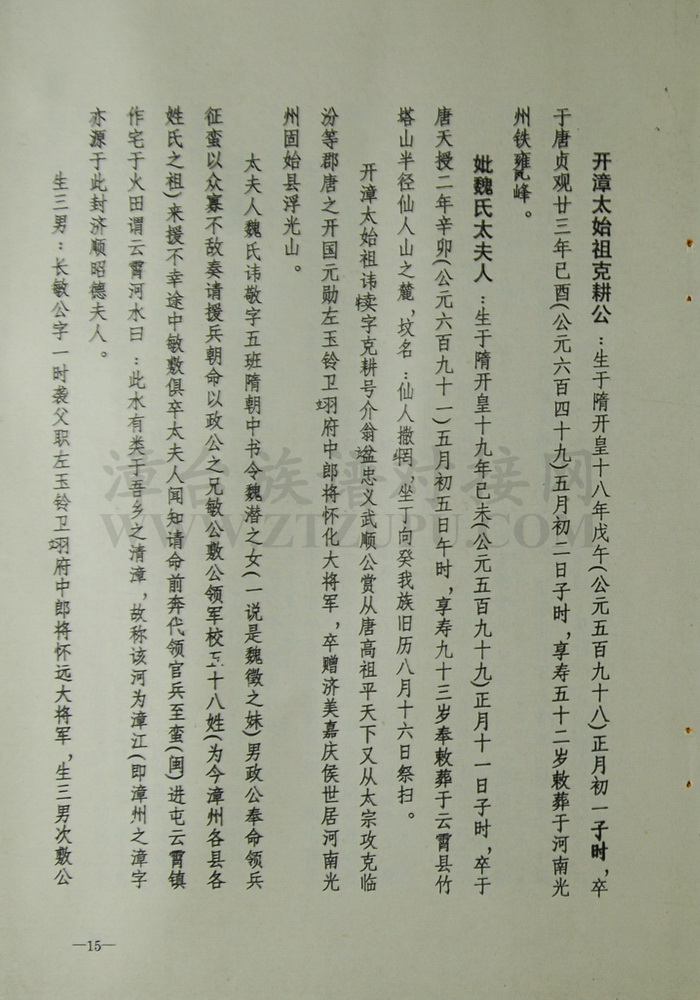 开漳太始祖克耕公：生于隋开皇十八年戊午(公元五百九十八)正月初一子时，卒
于唐贞观廿三年已酉(公元六百四十九)五月初二日子时，享寿五十二岁敕葬于河南光
州铁瓮峰。
妣魏氏太夫人：生于隋开皇十九年已未(公元五百九十九)正月十一日子时，卒于
唐天授二年辛卯(公元六百九十一)五月初五日午时，享寿九十三岁奉敕葬于云霄县竹
塔山半径仙人山之麓，坟名：仙人撒网，坐丁向癸我族旧历八月十六日祭扫。
开漳太始祖讳犊字克耕号介翁谥忠义武顺公赏从唐高祖平天下又从太宗攻克临
汾等郡唐之开国元勋左玉铃卫翊府中郎将怀化大将军，卒赠济美嘉庆侯世居河南光
州固始县浮光山。
太夫人魏氏讳敬字五班隋朝中书令魏潜之女(一说是魏徵之妹)男政公奉命领兵
征蛮以众寡不敌奏请援兵朝命以政公之兄敏公敷公领军校五十八姓(为今漳州各县各
姓氏之祖)来援不幸途中敏敷俱卒太夫人闻知请命前奔代领官兵至蛮(闽)进屯云霄镇
作宅于火田谓云霄河水曰：此水有类于吾乡之清漳，故称该河为漳江(即漳州之漳字
亦源于此封济顺昭德夫人。
生三男：长敏公字一时袭父职左玉铃卫翊府中郎将怀远大将军，生三男次敷公
—15—
江台族谱对接网
WWW.ZTZUPU.COM